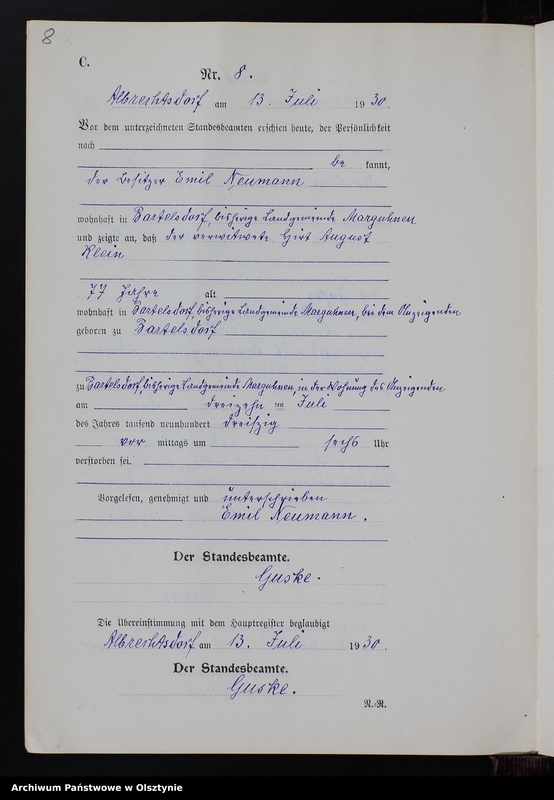 8
C.
Nr. 8.
Albrechtsdorf am 13. Juli 1930.
Vor dem unterzeichneten Standesbeamten erschien heute, der Persönlichkeit
nach
be kannt,
der Besitzer Emil Neumann
wohnhaft in Bartelsdorf, bisherige Landgemeinde Marguhnen
und zeigte an, daß der verwitwete Hirt August
Klein
77 Jahre alt
wohnhaft in Bartelsdorf, bisherige Landgemeinde Marguhnen, bei dem Anzeigenden
geboren zu Bartelsdorf
zu Bartelsdorf, bisherige Landgemeinde Marguhnen, in der Wohnung des Anzeigenden
am dreizehn ten Juli
des Jahres tausend neunhundert dreißig
vor mittags um sechs Uhr
verstorben sei.
Vorgelesen, genehmigt und unterschrieben
Emil Neumann.
Der Standesbeamte.
Guske.
Die Übereinstimmung mit dem Hauptregister beglaubigt
Albrechtsdorf am 13. Juli 1930.
Der Standesbeamte.
Guske.
N.-R.
Archiwum Państwowe w Olsztynie